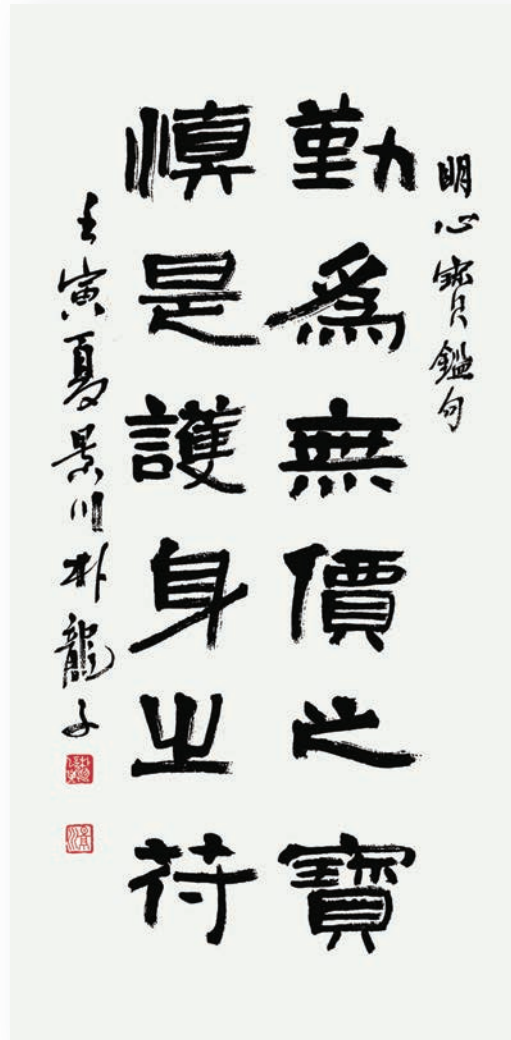 明心宝鑑句
勤爲無價之寶
愼是護身之符
壬寅夏景川朴龍子